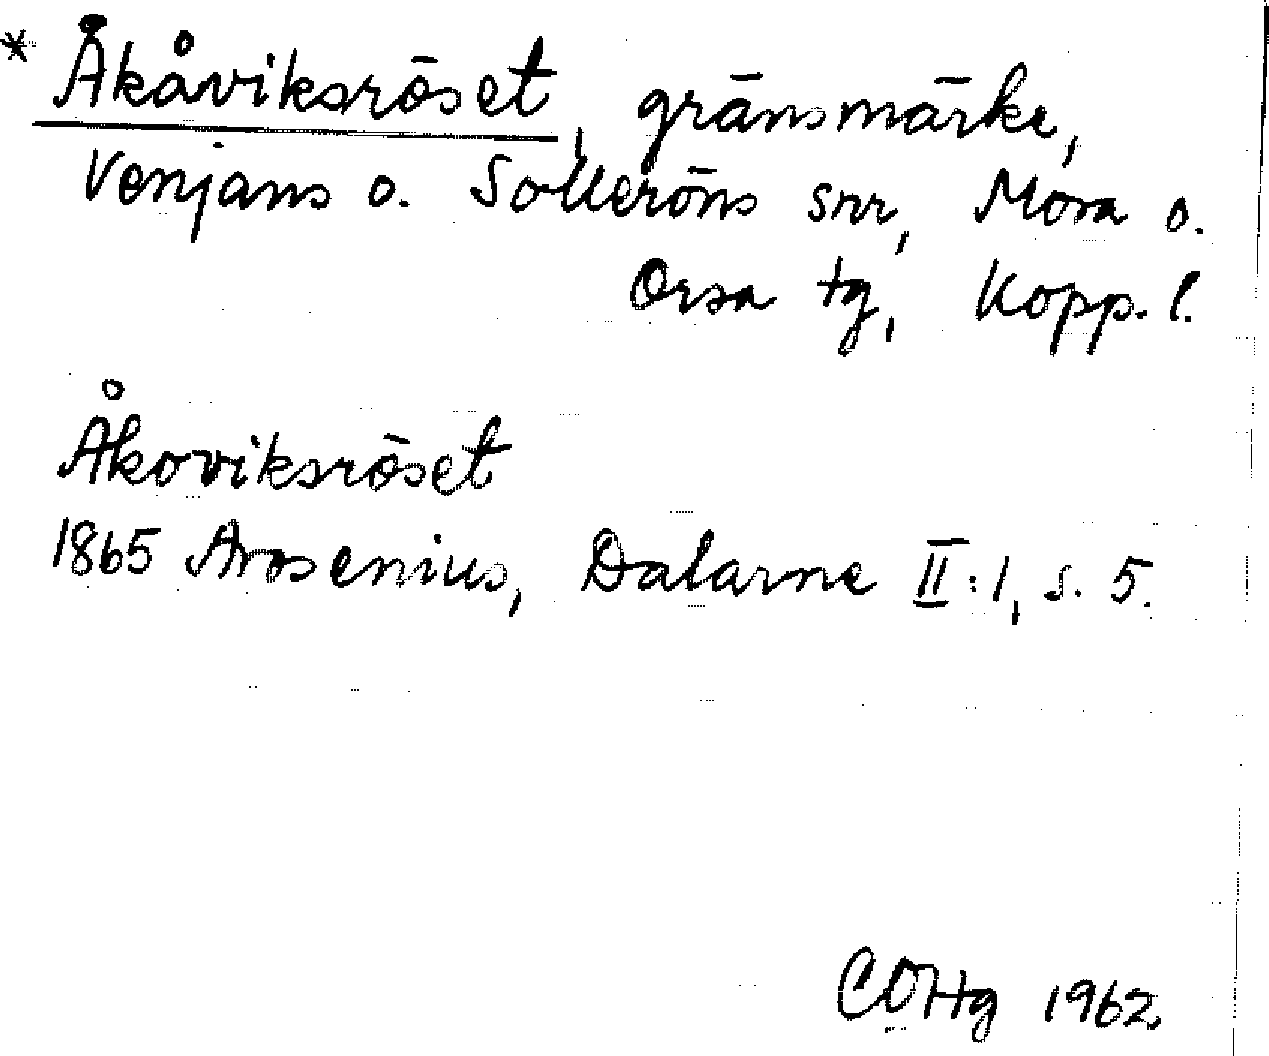 * Åkåviksröset, gränsmärke,
Venjans o. Solleröns snr, Mora o.
Orsa tg, Kopp. l.
Åkoviksröset
1865 Arosenius, Dalarne II:1, s. 5.
COHg 1962.